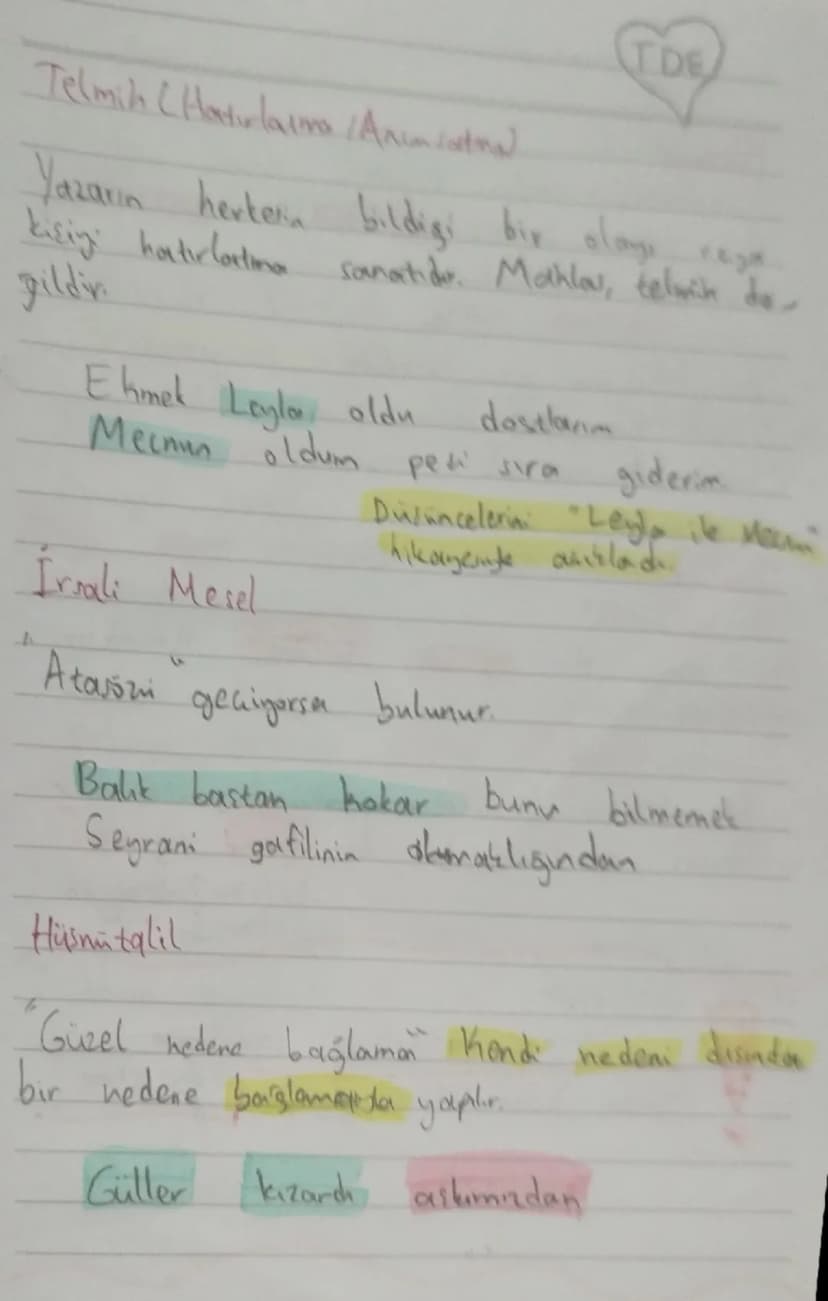 TDE
Telmih (Hatırlatma / Anımsatma)
Yazarın herkesin bildiği bir olayı veya
kişiyi hatırlatma sanatıdır. Mahlas, telmih de-
ğildir.
Ekmek Leyla oldu dostlarım
Mecnun oldum peşi sıra giderim
Düşüncelerini "Leyla ile Mecnun"
hikayesiyle anlattı.
İrsali Mesel
"Atasözü" geçiyorsa bulunur.
Balık baştan kokar bunu bilmemek
Seyrani gafilinin ahmaklığından
Hüsnütalil
"Güzel nedene bağlama" Kendi nedeni dışında
bir nedene bağlamakla yapılır.
Güller kızardı aşkımızdan